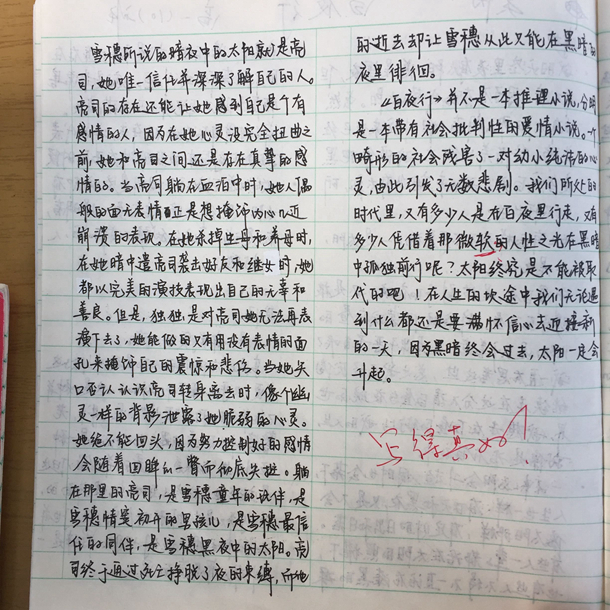 雪穗所说的暗夜中的太阳就是亮
司,她唯一信任并深深了解自己的人。
亮司的存在还能让她感到自己是个有
感情的人,因为在她心灵没完全扭曲之
前,她和亮司之间还是存在真挚的感
情的。当亮司躺在血泊中时,她人偶
般的面无表情正是想掩饰内心几近
崩溃的表现。在她杀掉生母和养母时,
在她暗中遣亮司袭击好友和继女时,她
都以完美的演技表现出自己的无辜和
善良。但是,独独是对亮司她无法再表
演下去了,她能做的只有用没有表情的面
孔来掩饰自己的震惊和悲伤。当她矢
口否认认识亮司转身离去时,像个幽
灵一样的背影泄露了她脆弱的心灵。
她绝不能回头,因为努力控制好的感情
会随着回眸的一瞥而彻底失控。躺
在那里的亮司,是雪穗童年的玩伴,是
雪穗情窦初开的男孩儿,是雪穗最信
任的同伴,是雪穗黑夜中的太阳。亮
司终于通过死亡挣脱了夜的束缚,而他
的逝去却让雪穗从此只能在黑暗的
夜里徘徊。
《白夜行》并不是一本推理小说,分明
是一本带有社会批判性的爱情小说。一个
畸形的社会残害了一对幼小纯洁的心
灵,由此引发了无数悲剧。我们所处的
时代里,又有多少人是在白夜里行走,又有
多少人凭借着那微软的人性之光在黑暗
中孤独前行呢?太阳终究是不能被取
代的吧!在人生的坎途中我们无论遇
到什么都还是要满怀信心去迎接新
的一天,因为黑暗终会过去,太阳一定会
升起。
写得真好!